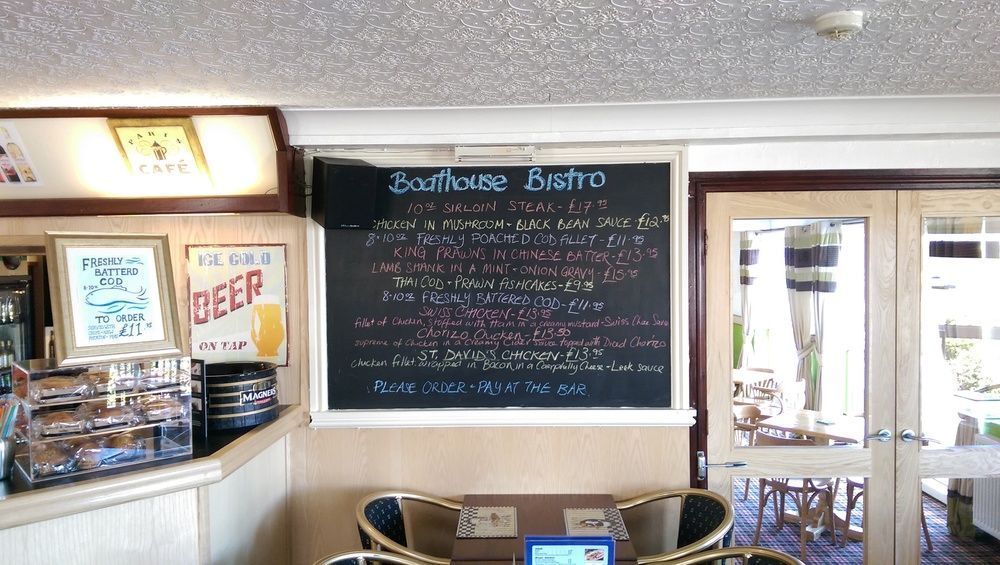 Boathouse Bistro
10oz SIRLOIN STEAK - £17.95
CHICKEN IN MUSHROOM + BLACK BEAN SAUCE - £12.95
8-10oz FRESHLY POACHED COD FILLET - £11.95
KING PRAWNS IN CHINESE BATTER - £13.95
LAMB SHANK IN A MINT + ONION GRAVY - £15.95
THAI COD + PRAWN FISHCAKES - £9.95
8-10oz FRESHLY BATTERED COD - £11.95
SWISS CHICKEN - £13.95
fillet of chicken, stuffed with Ham in a creamy mustard + Swiss Chee Sauce
Chorizo Chicken - £13.50
supreme of chicken in a creamy Cider sauce topped with Diced Chorizo
ST. DAVID'S CHICKEN - £13.95
chicken fillet wrapped in Bacon in a Caerphilly Cheese + Leek sauce
PLEASE ORDER + PAY AT THE BAR.
CAFÉ
FRESHLY
BATTERD
8-10oz
COD
TO ORDER
£11.95
ICE COLD
BEER
ON TAP
MAGNERS